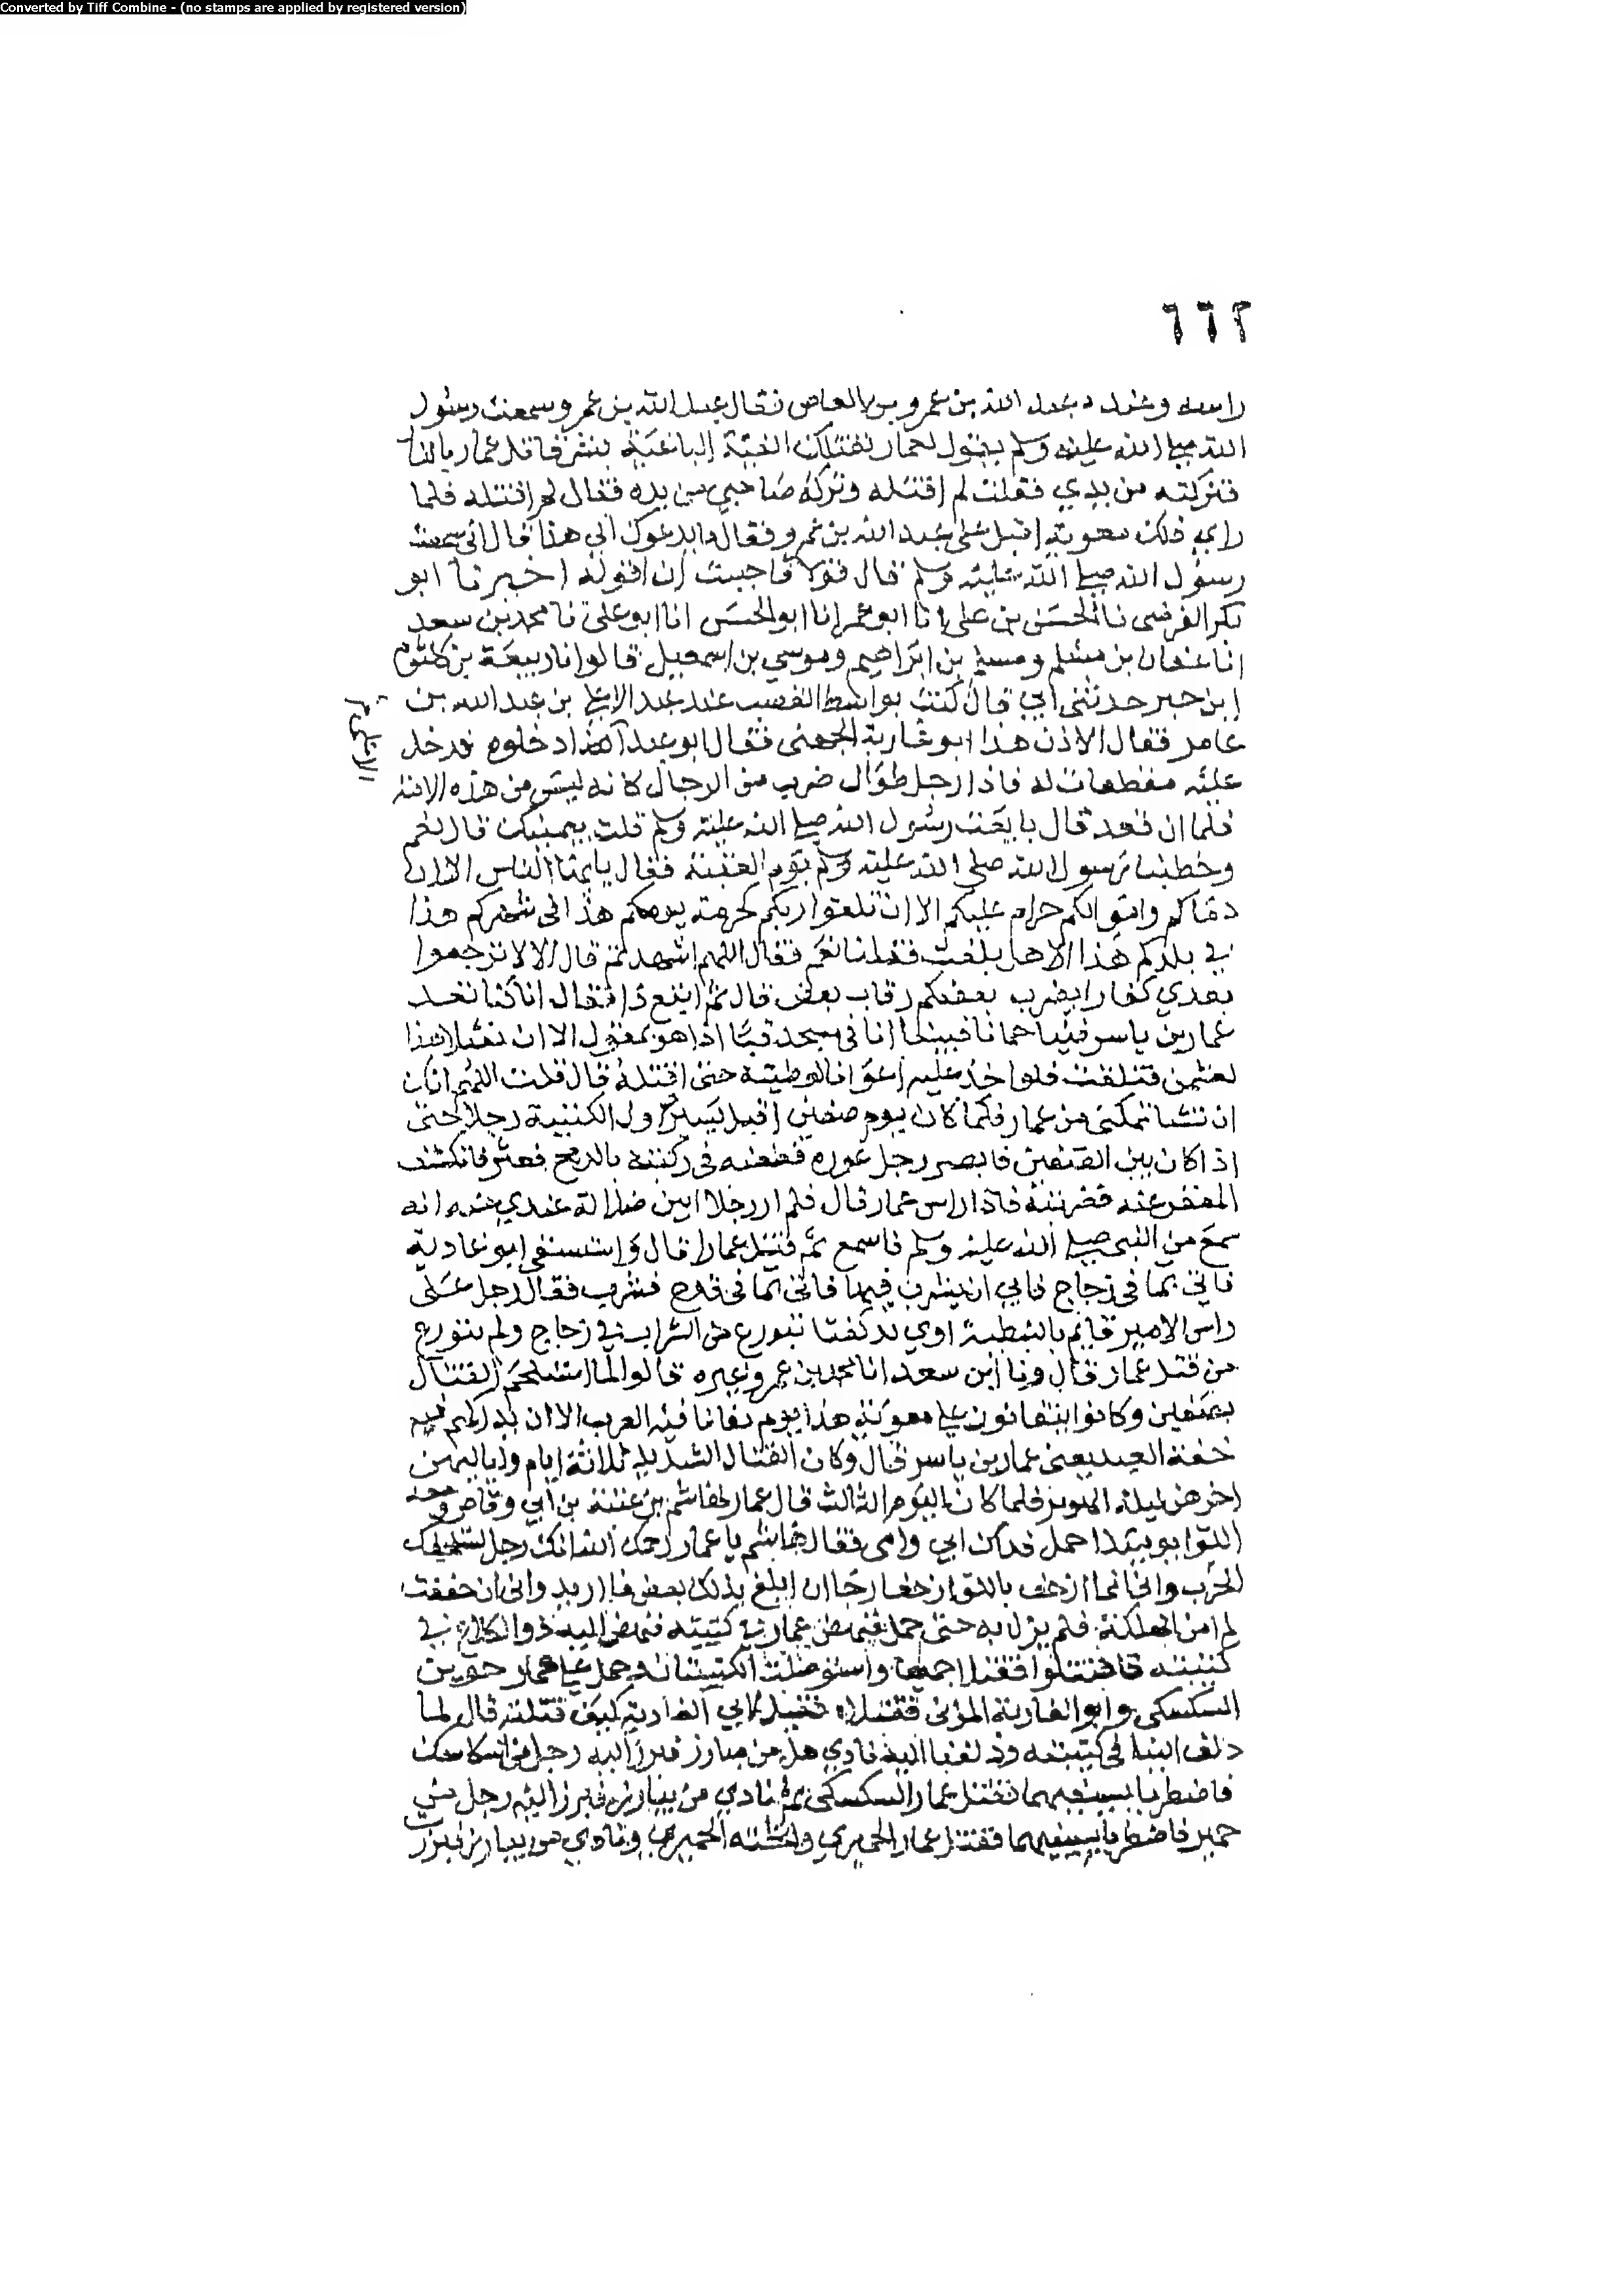 Converted by Tiff Combine - (no stamps are applied by registered version)
٦٦٢
راسه وعنده عبد الله بن عمرو بن العاص فقال عبد الله بن عمرو سمعت رسول
الله صلى الله عليه وسلم يقول لعمار تقتلك الفئة الباغية بشر قاتل عمار بالنار
فتركته من يدي فقلت لم اقتله وتركه صاحبي من يده فقال لم اقتله فلما
راي ذلك معوية اقبل على عبد الله بن عمرو فقال ما يدعوك الى هذا قال اني سمعت
رسول الله صلى الله عليه وسلم قال قولا فاحببت ان اقوله اخبرنا ابو
بكر الفرضي نا الحسن بن علي انا ابو عمر انا ابو الحسن انا ابو علي نا محمد بن سعد
انا عفان بن مسلم ومسلم بن ابراهيم وموسي بن اسمعيل قالوا نا ربيعة بن كلثوم
ابن جبر حدثني ابي قال كنت بواسط القصب عند عبد الاعلى بن عبد الله بن
عامر فقال الاذن هذا ابو غادية الجهني فقال ابو عبد الاعلى ادخلوه فدخل
عليه مقطعات له فاذا رجل طوال ضرب من الرجال كانه ليس من هذه الامة
فلما ان قعد قال بايعت رسول الله صلى الله عليه وسلم قلت بيمينك قال نعم
وخطبنا رسول الله صلى الله عليه وسلم يوم العقبة فقال يايها الناس الا ان
دماكم واموالكم حرام عليكم الا ان تلقوا ربكم كحرمة يومكم هذا في شهركم هذا
في بلدكم هذا الا هل بلغت فقلنا نعم فقال اللهم اشهد ثم قال الا لا ترجعوا
بعدي كفارا يضرب بعضكم رقاب بعض قال ثم اتبع ذا فقال انا كنا نعد
عمار بن ياسر فينا حنانا فبينما انا في مسجد قبا اذا هو يقول الا ان نعثلا هذا
لعثمن فتلفت فلو اجد عليه اعوانا لوطيته حتى اقتله قال قلت اللهم انك
ان تشا تمكني من عمار فلما كان يوم صفين اقبل يسير اول الكتيبة رجلا حتى
اذا كان بين الصفين فابصر رجل عورة فطعنه في ركبته بالرمح فعثر فانكشف
المغفر عنه فضربته فاذا راس عمار قال فلم ار رجلا ابين ضلالة عندي منه انه
سمع من النبي صلى الله عليه وسلم ما سمع ثم قتل عمارا قال واستسقى ابو غادية
فاتي بما في زجاج فابي ان يشرب فيها فاتى بما في قدح فشرب فقال رجل على
راس الامير قايم بالنبطية اوي يد كفتا يتورع من الشراب في زجاج ولم يتورع
من قتل عمار قال ونا ابن سعد انا محمد بن عمر وغيره قالوا لما استلحم القتال
بصفين وكادوا يتفانون قال معوية هذا يوم تفانا فيه العرب الا ان تدركهم فيه
خفة العبد يعني عمار بن ياسر قال وكان القتال الشديد ثلاثة ايام ولياليهن
اخرهن ليلة الهرير فلما كان اليوم الثالث قال عمار لهاشم بن عتبة بن ابي وقاص ومعه
اللوا يوميذ احمل فداك ابي وامي فقال هاشم يا عمار رحمك الله انك رجل تستخفك
الحرب واني انما ازحف باللوا زحفا رجا ان ابلغ بذلك بعض ما اريد واني ان خففت
لم امن الهلكة فلم يزل به حتى حمل فنهض عمار في كتيبته فنهض اليه ذو الكلاع في
كتيبته فاقتتلوا فقتلا جميعا واستوصلت الكتيبتان وحمل على عمار حوي بن
السكسكي وابو الغادية المزني فقتلاه فقيل لابي الغادية كيف قتلته قال لما
دلف الينا في كتيبته ودلفنا اليه نادي هل من مبارز فبرز اليه رجل من السكاسك
فاضطربا بسيفيهما فقتل عمار السكسكي ثم نادي من يبارز فبرز اليه رجل من
حمير فاضطربا بسيفيهما فقتل عمار الحميري واثخنه الحميري ونادي من يبارز فبرزت